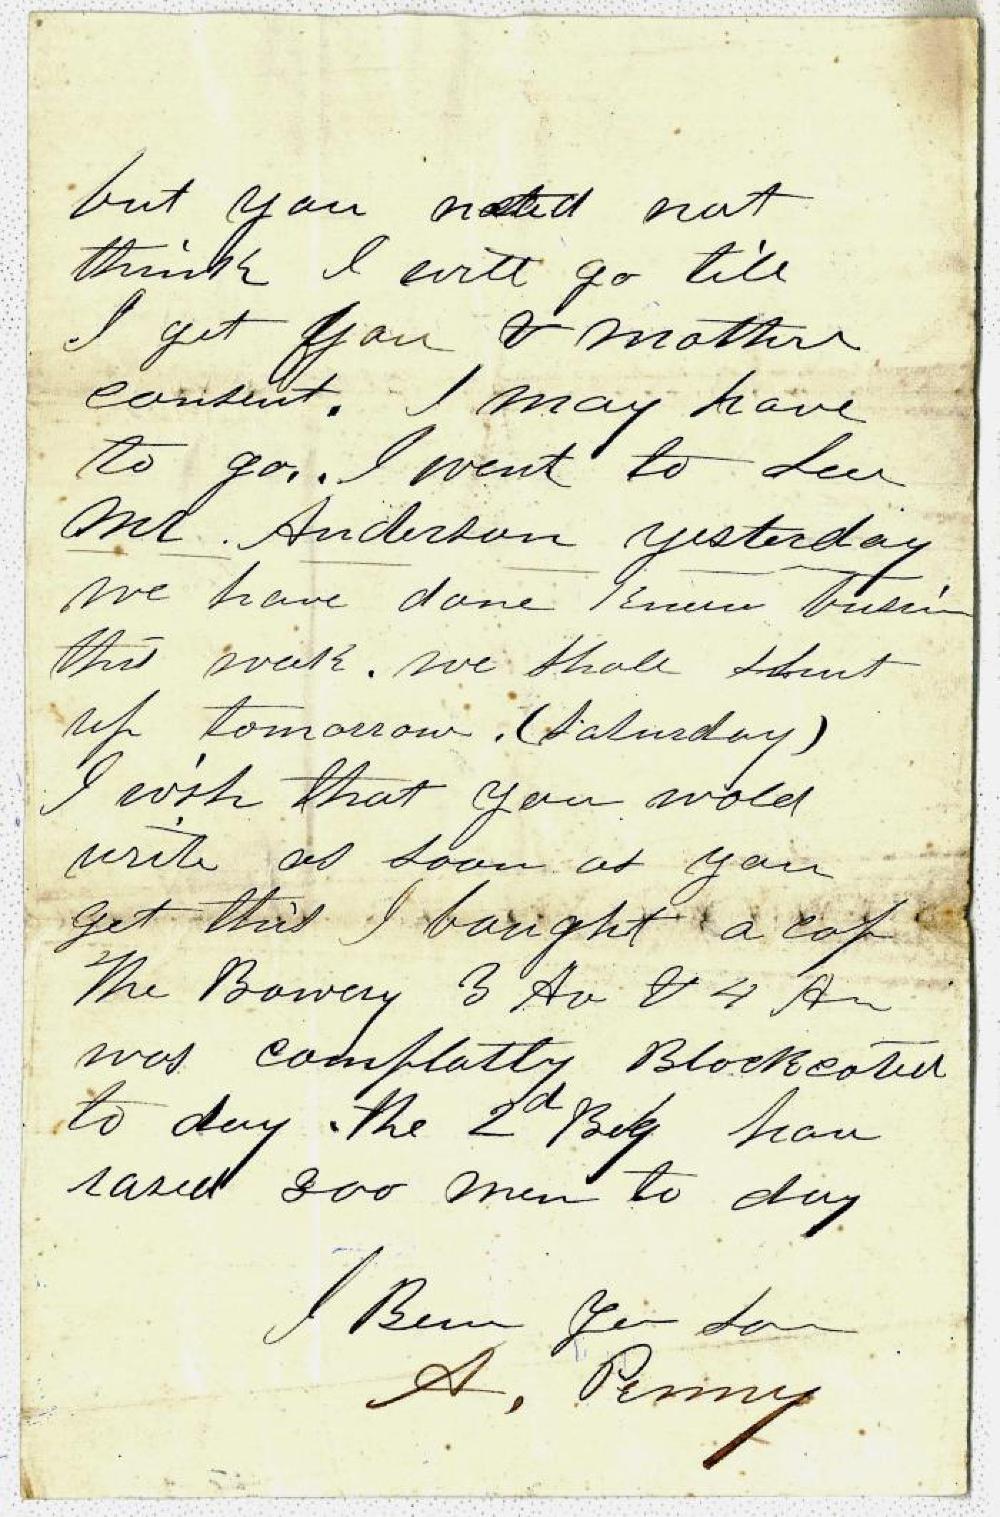 but you need not
think I will go till
I get you & mothers
consent. I may have
to go.. I went to see
Mr. Anderson yesterday
we have done busin
this week. we shall shut
up tomorrow. (Saturday)
I wish that you wold
write as soon as you
get this I bought a cap
The Bowery 3 Av & 4 Av
was complatly Blockcated
to day. the 2d Beg have
rased 300 men to day
I Been Your son
A. Penny